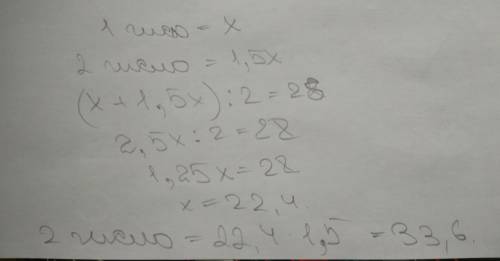 1 число = x
2 число = 1,5x
(x+1,5x):2=28
2,5x:2=28
1,25x=28
x=22,4.
2 число = 22,4·1,5 = 33,6.